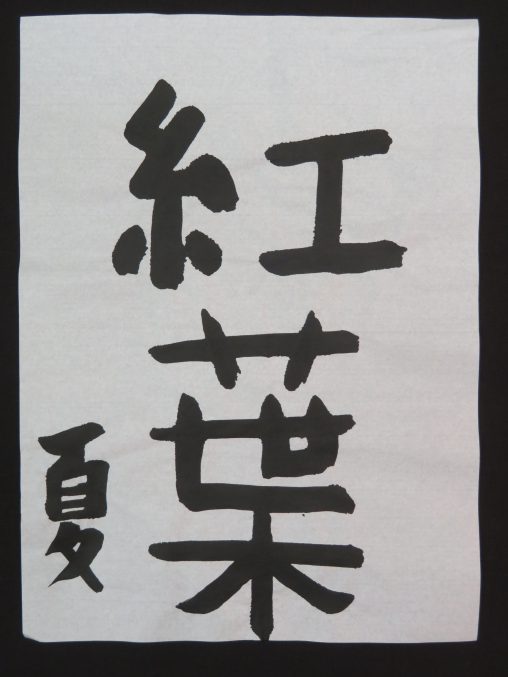 紅葉
夏